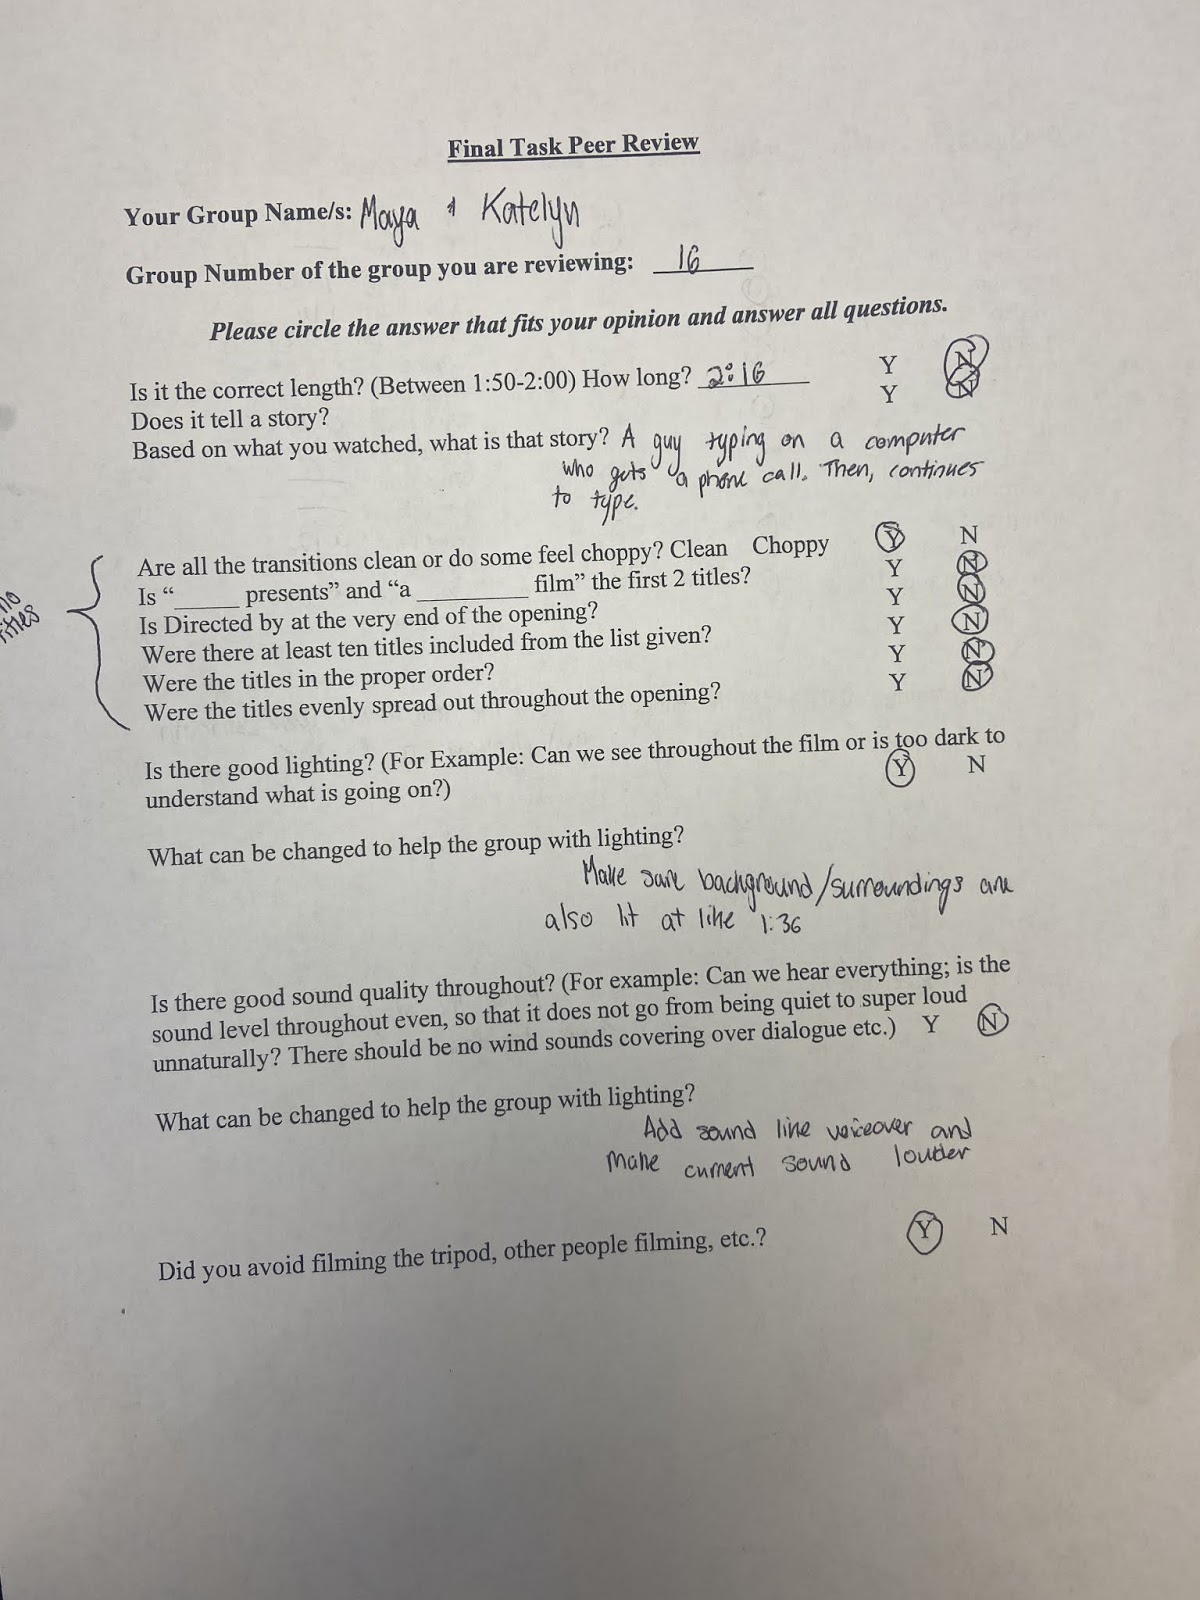 Final Task Peer Review
Your Group Name/s: Maya & Katelyn
Group Number of the group you are reviewing: 16
Please circle the answer that fits your opinion and answer all questions.
Is it the correct length? (Between 1:50-2:00) How long? 2:16 Y N
Does it tell a story? Y N
Based on what you watched, what is that story? A guy typing on a computer
who gets a phone call. Then, continues
to type.
Are all the transitions clean or do some feel choppy? Clean Choppy Y N
Is “______ presents” and “a __________ film” the first 2 titles? Y N
Is Directed by at the very end of the opening? Y N
Were there at least ten titles included from the list given? Y N
no
titles
Were the titles in the proper order? Y N
Were the titles evenly spread out throughout the opening? Y N
Is there good lighting? (For Example: Can we see throughout the film or is too dark to
understand what is going on?) Y N
What can be changed to help the group with lighting?
Make sure background/surroundings are
also lit at like 1:36
Is there good sound quality throughout? (For example: Can we hear everything; is the
sound level throughout even, so that it does not go from being quiet to super loud
unnaturally? There should be no wind sounds covering over dialogue etc.) Y N
What can be changed to help the group with lighting?
Add sound like voiceover and
make current sound louder
Did you avoid filming the tripod, other people filming, etc.? Y N